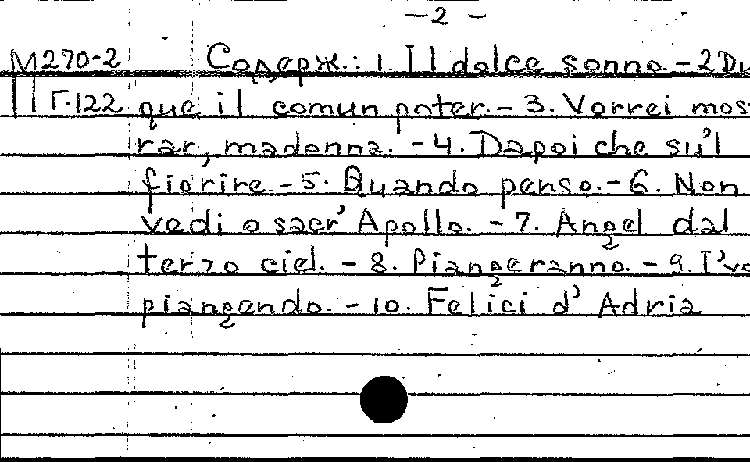 -2-
М270-2 Содерж.: 1. Il dolce sonno. - 2 Du
Г-122 que il comun poter. - 3. Vorrei mos
rar, madonna. - 4. Dapoi che su'l
fiorire. - 5. Quando penso. - 6. Non
vedi o sacr' Apollo. - 7. Angel dal
terzo ciel. - 8. Piangeranno. - 9. I'vo
piangendo. - 10. Felici d' Adria